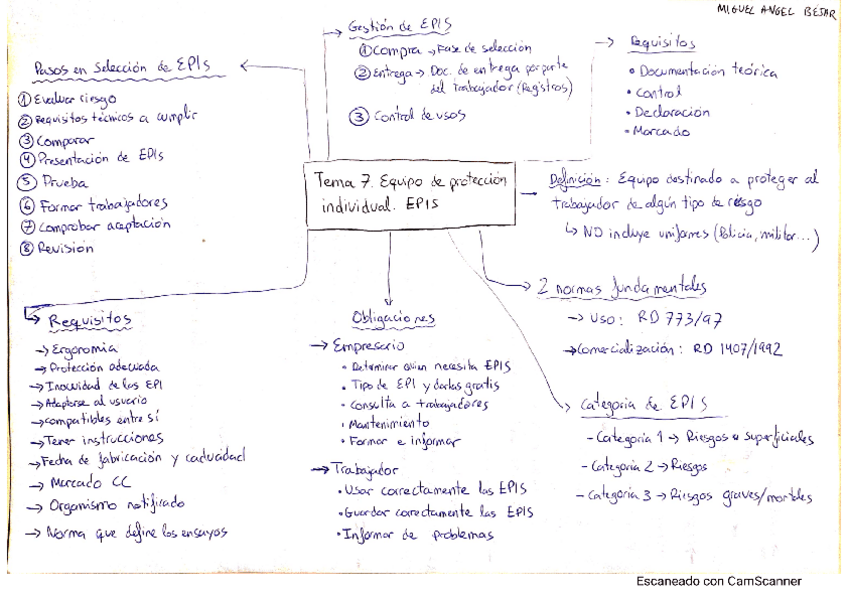 MIGUEL ANGEL BEJAR
Gestión de EPIS
① Compra → Fase de selección
② Entrega → Doc. de entrega por parte
del trabajador (Registros)
③ Control de usos
Requisitos
• Documentación teórica
• Control
• Declaración
• Marcado
Pasos en selección de EPIS
① Evaluar riesgo
② Requisitos técnicos a cumplir
③ Comparar
④ Presentación de EPIS
⑤ Prueba
⑥ Formar trabajadores
⑦ Comprobar aceptación
⑧ Revisión
Tema 7. Equipo de protección
individual. EPIS
Definición: Equipo destinado a proteger al
trabajador de algún tipo de riesgo
↳ NO incluye uniformes (Policia, militar...)
2 normas fundamentales
→ Uso: RD 773/97
→ Comercialización: RD 1407/1992
Requisitos
→ Ergonomia
→ Protección adecuada
→ Inocuidad de las EPI
→ Adaptarse al usuario
→ compatibles entre sí
→ Tener instrucciones
→ Fecha de fabricación y caducidad
→ Marcado CC
→ Organismo notificado
→ Norma que define los ensayos
Obligaciones
→ Empresario
• Determinar quien necesita EPIS
• Tipo de EPI y darlas gratis
• Consulta a trabajadores
• Mantenimiento
• Formar e informar
→ Trabajador
• Usar correctamente las EPIS
• Guardar correctamente las EPIS
• Informar de problemas
Categoria de EPIS
- Categoria 1 → Riesgos superficiales
- Categoria 2 → Riesgos
- Categoria 3 → Riesgos graves/mortales
Escaneado con CamScanner